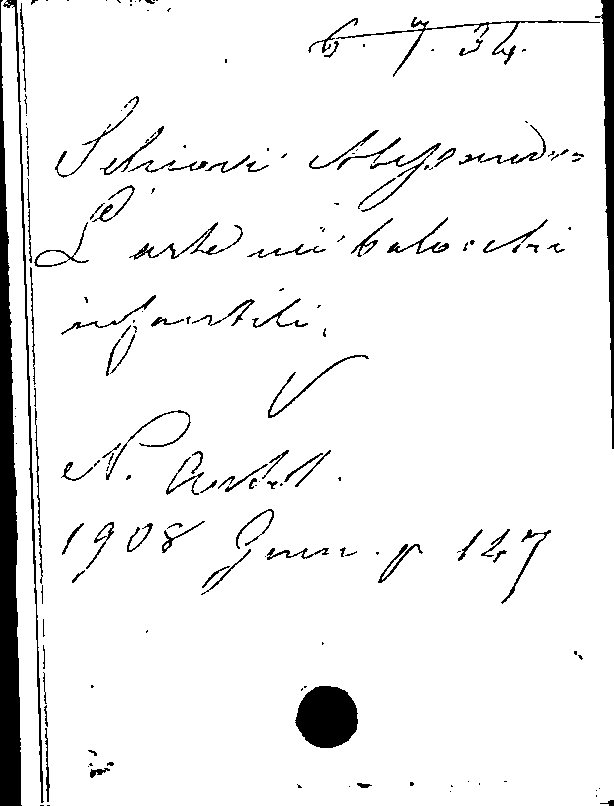 6. 7. 34.
Schiavi Alessandro
L'arte nei balocchi
infantili.
V
N. Antol.
1908 Genn. p 147